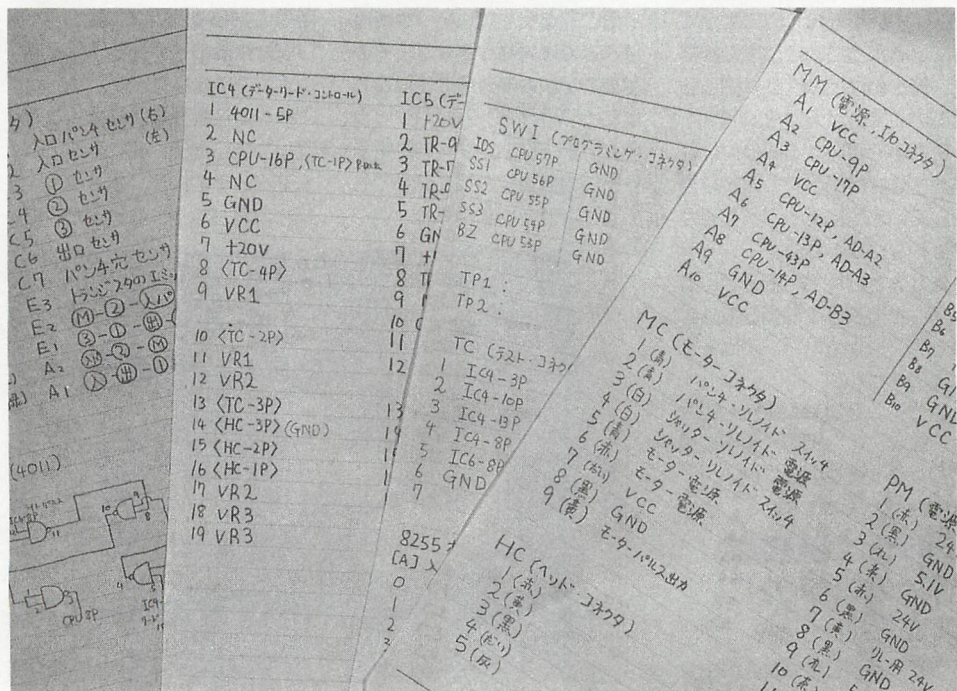 入口パンチセンサ (右)
入口センサ (左)
① センサ
② センサ
C5 ③ センサ
C6 出口センサ
C7 パンチ穴センサ
E3
E2
E1 ③-①-出
A2
A1 入-出-①
(4011)
CPU 8P
IC4 (データーリード・コントロール)
1 4011-5P
2 NC
3 CPU-16P, <TC-1P>
4 NC
5 GND
6 VCC
7 +20V
8 <TC-4P>
9 VR1
10 <TC-2P>
11 VR1
12 VR2
13 <TC-3P>
14 <HC-3P> (GND)
15 <HC-2P>
16 <HC-1P>
17 VR2
18 VR3
19 VR3
IC5 (デー
1 +20V
2 TR-9
3 TR-7
4 TR-
5 TR-
6 GN
7
8
9
10
11
12
13
8255
[A]
0
1
2
SWI (プログラミング・コネクタ)
IDS CPU 57P GND
SS1 CPU 56P GND
SS2 CPU 55P GND
SS3 CPU 54P GND
BZ CPU 53P GND
TP1 :
TP2 :
TC (テスト・コネク
1 IC4-3P
2 IC4-10P
3 IC4-13P
4 IC4-8P
5 IC6-8P
6 GND
7
HC (ヘッド・コネクタ)
1 (赤)
2 (黄)
3 (黒)
4 (だい)
5 (灰)
MM (電源, I/Oコネクタ)
A1 VCC
A2 CPU-9P
A3 CPU-17P
A4 VCC
A5 CPU-12P, AD-A2
A6 CPU-13P, AD-A3
A7 CPU-43P
A8 CPU-14P, AD-B3
A9 GND
A10 VCC
MC (モーターコネクタ)
1 (青) パンチ・ソレノイド スイッチ
2 (黄) パンチ・ソレノイド 電源
3 (白) シャッターソレノイド 電源
4 (白) シャッターソレノイド スイッチ
5 (青) モーター電源
6 (赤) モーター電源
7 (だい) VCC
8 (黒) GND
9 (黄) モーターパルス出力
B5
B6
B7
B8 G
B9 GND
B10 VCC
PM (電源
1 (赤) 24
2 (黒) GND
3 (だい) 5.1V
4 (茶) GND
5 (赤) 24V
6 (黒) GND
7 (黄) リレー用 24V
8 (黒) GND
9
10